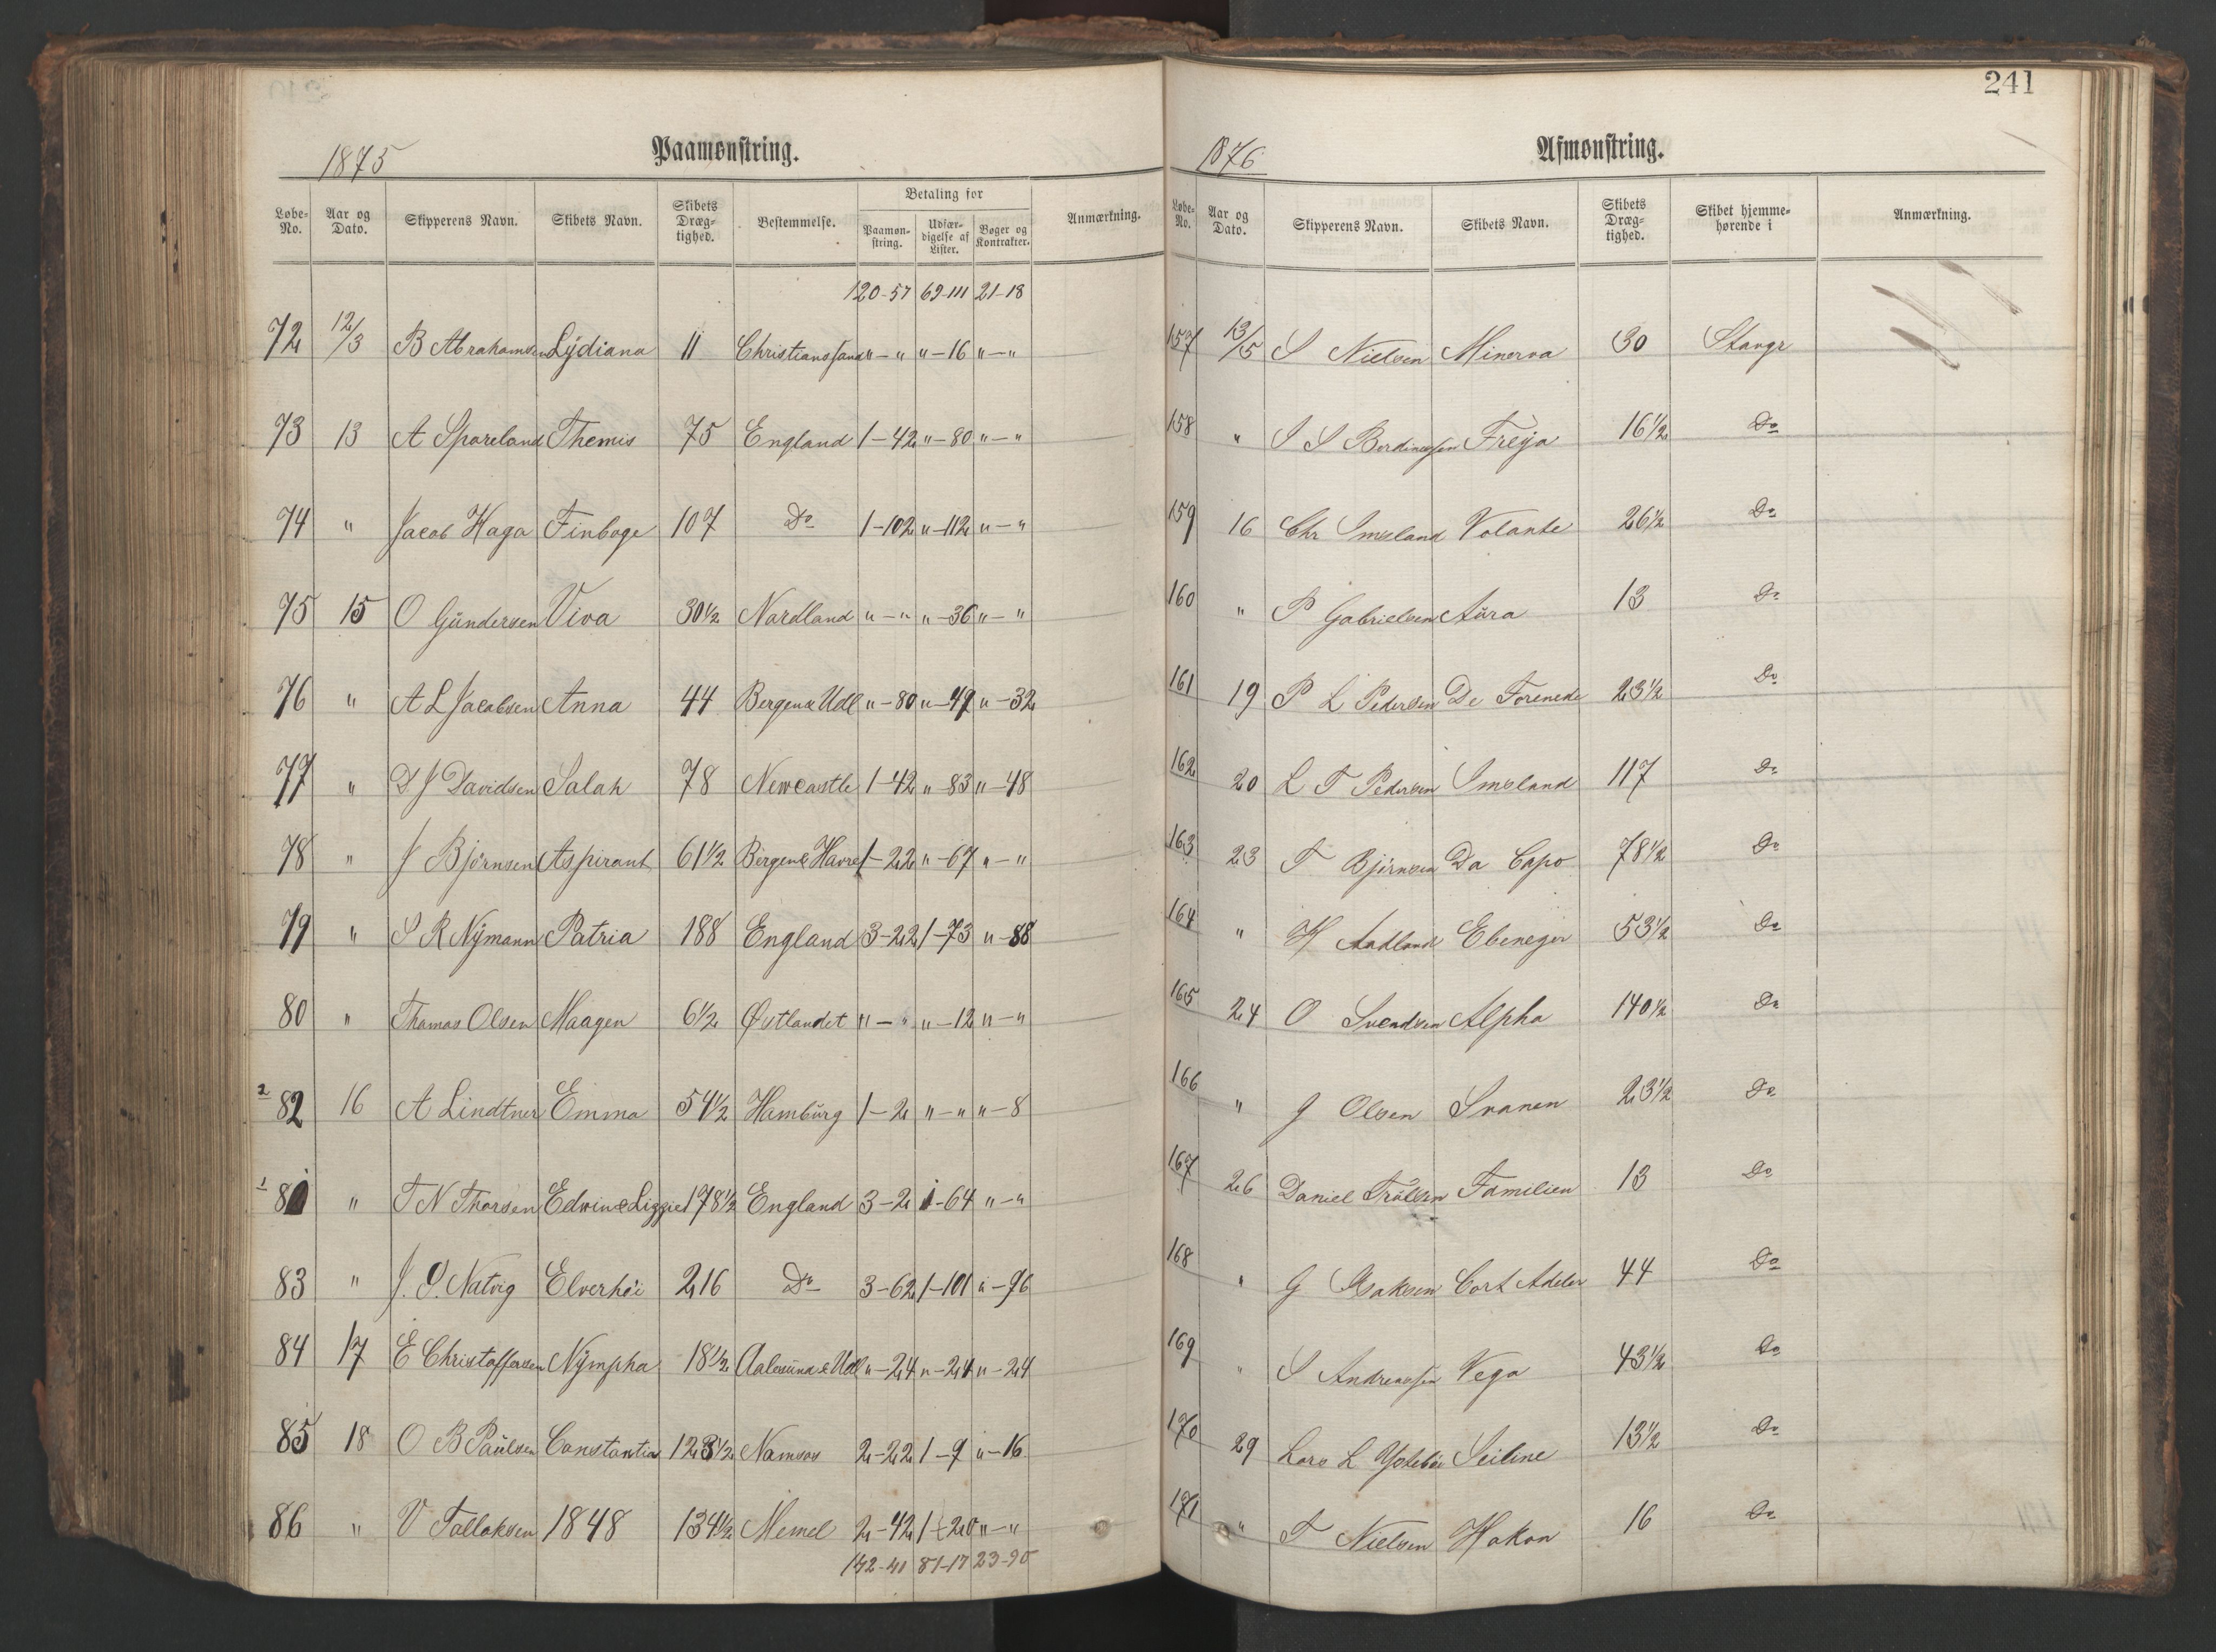 1875 Paamønstring.
Løbe-No. Aar og Dato. Skipperens Navn. Skibets Navn. Skibets Dræg-tighed. Bestemmelse. Betaling for Paamøn-string. Udfær-digelse af Lister. Bøger og Kontrakter. Anmærkning.
120-57 69-111 21-18
72 12/3 B Abrahamsen Lydiana 11 Christianssand "-" "-16 "-"
73 13 A Spareland Themis 75 England 1-42 "-80 "-"
74 " Jacob Haga Finboge 107 Do 1-102 "-112 "-"
75 15 O Gundersen Viva 30 1/2 Nordland "-" "-36 "-"
76 " A L Jacobsen Anna 44 Bergen & Udl "-80 "-47 "-32
77 " D J Davidsen Salah 78 Newcastle 1-42 "-83 "-48
78 " J Bjørnsen Aspirant 61 1/2 Bergen & Havre 1-22 "-67 "-"
79 " S R Nymann Patria 188 England 3-22 1-73 "-88
80 " Thomas Olsen Maagen 6 1/2 Østlandet "-" "-12 "-"
2 82 16 A Lindtner Emma 54 1/2 Hamburg 1-2 "-" "-8
1 81 " T N Thorsen Edwin & Lizzie 178 1/2 England 3-2 1-64 "-"
83 " J. O. Natvig Elverhøi 216 Do 3-62 1-101 "-96
84 17 E Christoffersen Nympha 18 1/2 Aalesund & Udl "-24 "-24 "-24
85 18 O B Paulsen Constantia 123 1/2 Namsos 2-22 1-9 "-16
86 " V Tallaksen 1848 134 1/2 Memel 2-42 1-20 "-"
142-40 81-17 23-90
241
1876 Afmønstring.
Løbe-No. Aar og Dato. Skipperens Navn. Skibets Navn. Skibets Dræg-tighed. Skibet hjemme-hørende i Anmærkning.
157 13/5 S Nielsen Minerva 30 Stavgr
158 " S S Berdinessen Freja 16 1/2 Do
159 16 Chr Imsland Volante 26 1/2 Do
160 " P Gabrielsen Aura 13 Do
161 19 P L Pedersen De Forenede 23 1/2 Do
162 20 L T Pedersen Imsland 117 Do
163 23 T Bjørnsen Da Capo 78 1/2 Do
164 " H Aadland Ebeneger 53 1/2 Do
165 24 O Svendsen Alpha 140 1/2 Do
166 " G Olsen Svanen 23 1/2 Do
167 26 Daniel Trulsen Familien 13 Do
168 " G Isaksen Cort Adeler 44 Do
169 " S Andreassen Vega 43 1/2 Do
170 29 Lars L Ystebøe Seiline 13 1/2 Do
171 " T Nielsen Hakon 16 Do